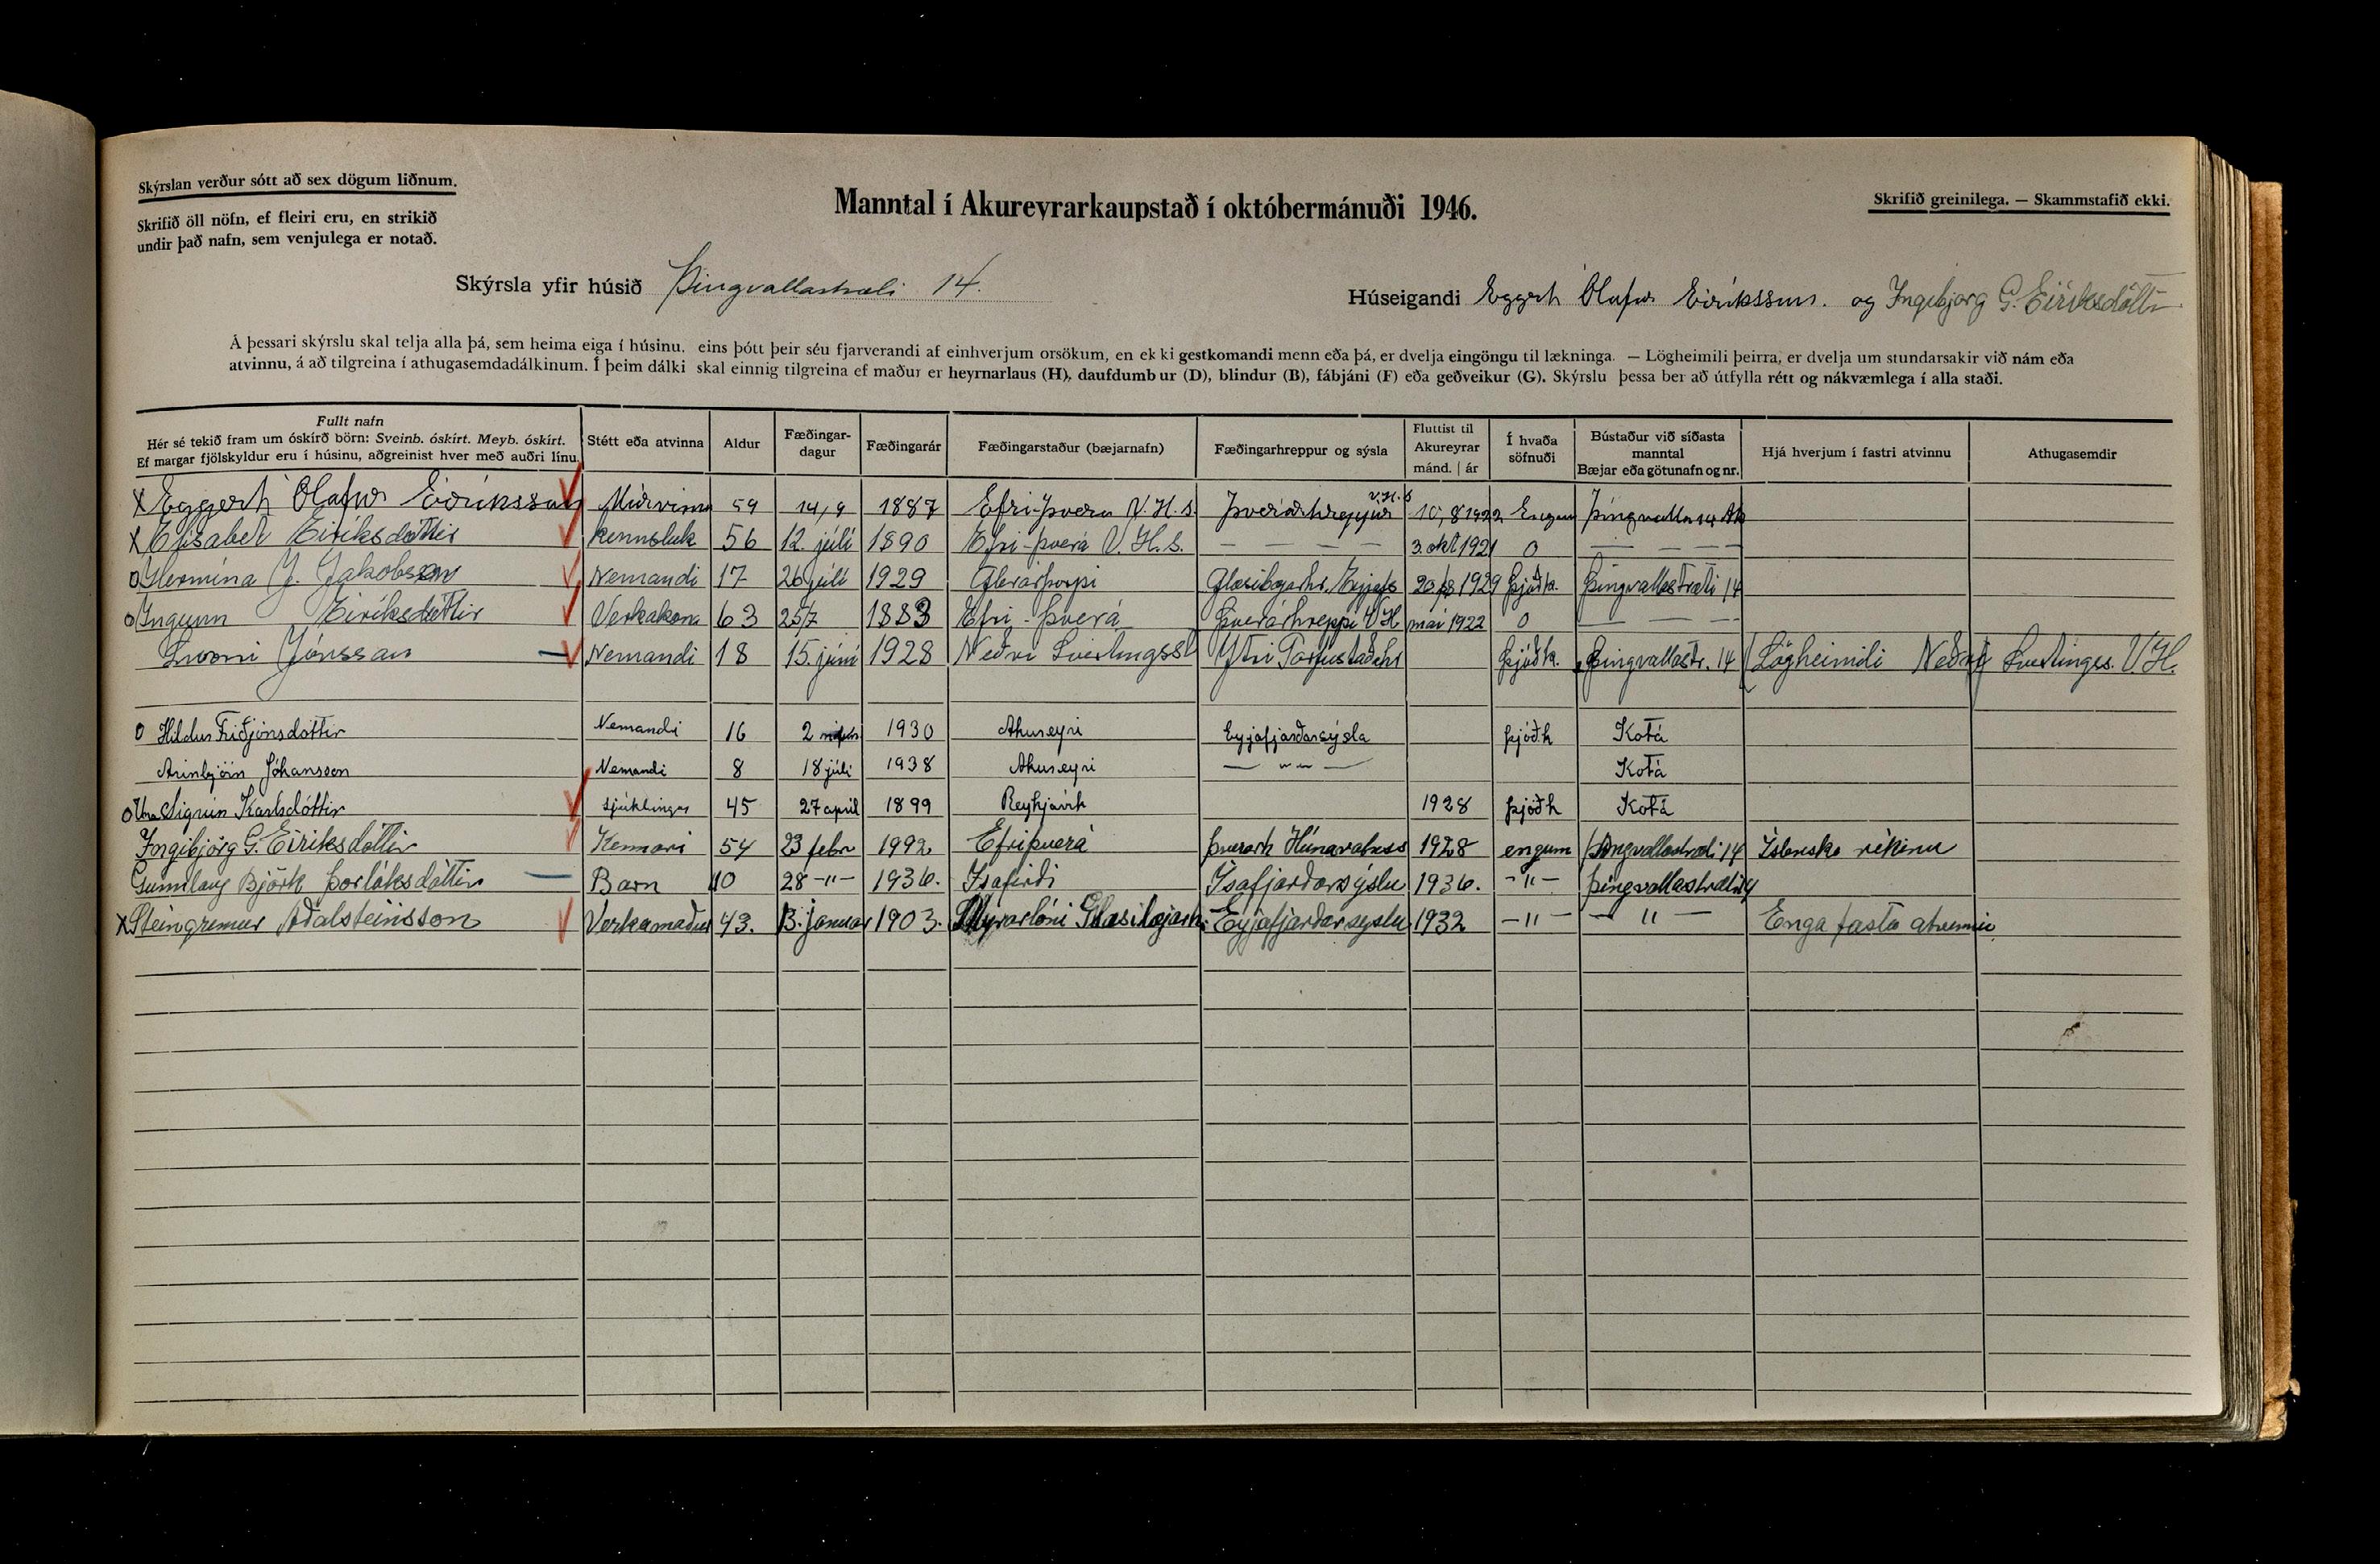 Skýrslan verður sótt að sex dögum liðnum.
Skrifið öll nöfn, ef fleiri eru, en strikið
undir það nafn, sem venjulega er notað.
Manntal í Akureyrarkaupstað í októbermánuði 1946.
Skrifið greinilega. — Skammstafið ekki.
Skýrsla yfir húsið Þingvallastræti 14.
Húseigandi Eggert Ólafur Eiríksson. og Ingibjörg G. Eiríksdóttir
Á þessari skýrslu skal telja alla þá, sem heima eiga í húsinu, eins þótt þeir séu fjarverandi af einhverjum orsökum, en ekki gestkomandi menn eða þá, er dvelja eingöngu til lækninga. — Lögheimili þeirra, er dvelja um stundarsakir við nám eða
atvinnu, á að tilgreina í athugasemdadálkinum. Í þeim dálki skal einnig tilgreina ef maður er heyrnarlaus (H), daufdumbur (D), blindur (B), fábjáni (F) eða geðveikur (G). Skýrslu þessa ber að útfylla rétt og nákvæmlega í alla staði.
Fullt nafn
Hér sé tekið fram um óskírð börn: Sveinb. óskírt. Meyb. óskírt.
Ef margar fjölskyldur eru í húsinu, aðgreinist hver með auðri línu.
Stétt eða atvinna
Aldur
Fæðingar-
dagur
Fæðingarár
Fæðingarstaður (bæjarnafn)
Fæðingarhreppur og sýsla
Fluttist til
Akureyrar
mánd. | ár
Í hvaða
söfnuði
Bústaður við síðasta
manntal
Bæjar eða götunafn og nr.
Hjá hverjum í fastri atvinnu
Athugasemdir
x Eggert Ólafur Eiríksson Múrvinna 59 14/9 1887 Efri Þverá V.H.S. Þverárhreppur V.H.S 10/8 1922 Engum Þingvallas 14 Ak
x Elísabet Eiríksdóttir kennsluk 56 12. júlí 1890 Efri-þverá V.H.S. — — — — 3. okt 1921 0 — — —
o Hermína J. Jakobsen Nemandi 17 26 júlí 1929 Glerárþorpi Glæsibæjarhr. Eyjafs 1929 Þjóðk. Þingvallastræti 14
o Ingunn Eiríksdóttir Verkakona 63 25/7 1883 Efri-Þverá Þverárhreppi V H maí 1922 0 — — —
Jónsson Nemandi 18 15. júní 1928 Neðri Ytri Torfustaðahr Þjóðk. Þingvallastr. 14 Lögheimili V.H.
o Hildur Friðjónsdóttir Nemandi 16 2 1930 Akureyri Eyjafjarðarsýsla þjóðk Kotá
Arinbjörn Jóhansson Nemandi 8 18 júlí 1938 Akureyri — " " — Kotá
o Una Sigrún Karlsdóttir Sjúklingur 45 27 apríl 1899 Reykjavík 1928 þjóðk Kotá
Ingibjörg G. Eiríksdóttir Kennari 54 23 febr 1992 Efriþverá Þverárh Húnavatnss 1928 engum Þingvallastræti 14 Íslenska ríkinu
Gunnlaug Björk Þorláksdóttir Barn 10 28 -"- 1936. Ísafirði Ísafjarðarsýslu 1936. -"- Þingvallastræti 14
x Steingrímur Aðalsteinsson Verkamaður 43. 13. januar 1903. Myrarlóni Glæsibæjarh. Eyjafjarðarsýslu 1932 -"- — " — Enga fasta atvinnu